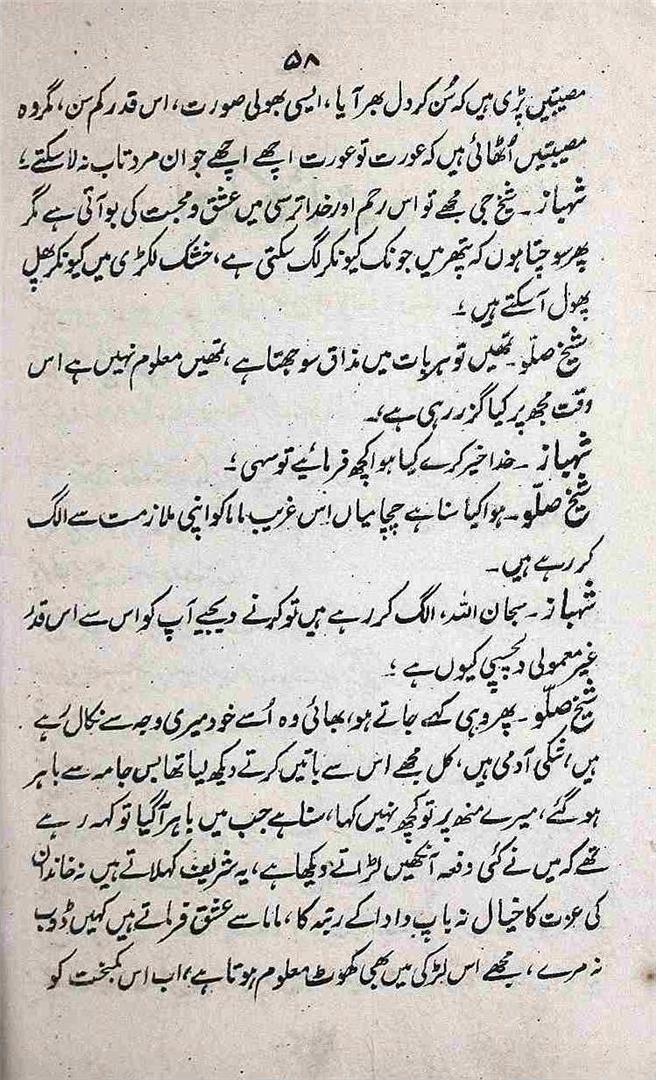 ۵۸
مصیبتیں پڑی ہیں کہ سُن کر دل بھر آیا، ایسی بھولی صورت، اس قدر کم سن، مگر وہ
مصیبتیں اُٹھائی ہیں کہ عورت تو عورت اچھے اچھے جوان مرد تاب نہ لا سکتے؛
شہباز۔ شیخ جی مجھے تو اس رحم اور خدا ترسی میں عشق و محبت کی بو آتی ہے مگر
پھر سوچتا ہوں کہ پتھر میں جونک کیونکر لگ سکتی ہے، خشک لکڑی میں کیونکر پھل
پھول آ سکتے ہیں؛
شیخ صلّو۔ تمھیں تو ہر بات میں مذاق سوجھتا ہے، تمھیں معلوم نہیں ہے اس
وقت مجھ پر کیا گزر رہی ہے؛
شہباز۔ خدا خیر کرے کیا ہوا کچھ فرمائیے تو سہی؛
شیخ صلّو۔ ہوا کیا سنا ہے چچا میاں اس غریب ماما کو اپنی ملازمت سے الگ
کر رہے ہیں۔
شہباز۔ سبحان اللہ، الگ کر رہے ہیں تو کرنے دیجیے آپ کو اس سے اس قدر
غیر معمولی دلچسپی کیوں ہے؛
شیخ صلّو۔ پھر وہی کہے جاتے ہو، بھائی وہ اُسے خود میری وجہ سے نکال رہے
ہیں، شکی آدمی ہیں، کل مجھے اس سے باتیں کرتے دیکھ لیا تھا بس جامہ سے باہر
ہو گئے، میرے منھ پر تو کچھ نہیں کہا، سنا ہے جب میں باہر آگیا تو کہہ رہے
تھے کہ میں نے کئی دفعہ آنکھیں لڑاتے دیکھا ہے، یہ شریف کہلاتے ہیں نہ خاندان
کی عزت کا خیال نہ باپ دادا کے رتبہ کا، ماما سے عشق فرماتے ہیں کہیں ڈوب
نہ مرے، مجھے اس لڑکی میں بھی کھوٹ معلوم ہوتا ہے، اب اس کمبخت کو